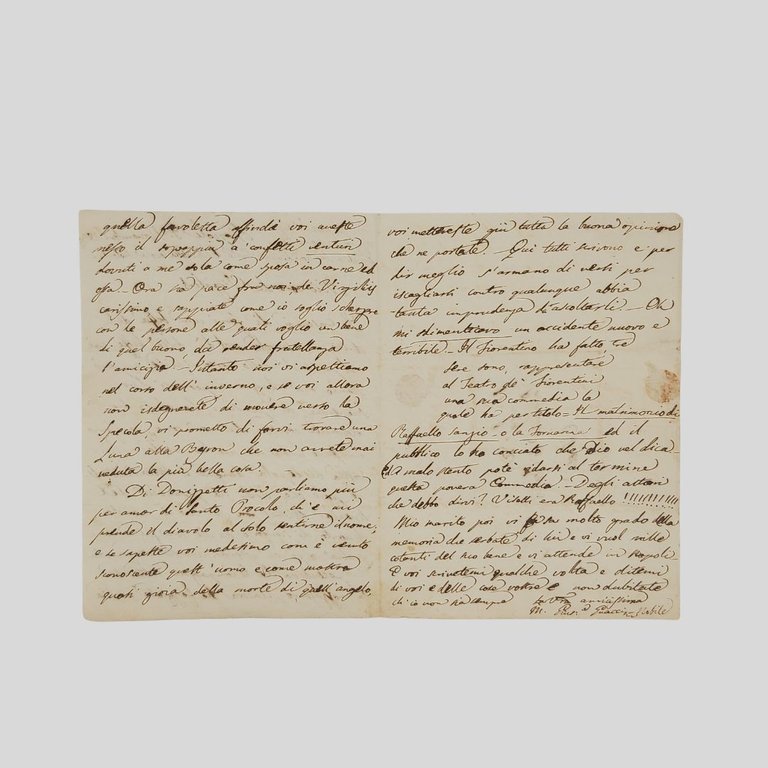 quella favoletta affinchè voi aveste
nesso il a' confetti venturi
dovuti a me sola come sposa in carne ed
ossa. Ora sia pace fra noi
carissimo e sappiate come io soglio
con le persone alle quali voglio un bene
di quel buono, da render fratellanza
l'amicizia — Intanto noi vi aspettiamo
nel corso dell'inverno, e se voi allora
non isdegnerete di movere verso la
Specola, vi prometto di farvi trovare una
Luna alla Byron che non avrete mai
veduta la più bella cosa.
Di Donizetti non parliamo più
per amor di Santo ch'è mi
prende il diavolo al solo sentirne il nome,
e se sapeste voi medesimo com'è venuto
sconoscente quest'uomo e come mostra
quasi gioia della morte di quell'angelo,
voi mettereste giù tutta la buona opinione
che ne portate. — Qui tutti scrivono e per
dir meglio s'armano di versi per
iscagliarsi contro qualunque abbia
tanta imprudenza d'ascoltarli. — Oh
mi dimenticavo un accidente nuovo e
terribile — Il Fiorentino ha fatto tre
sere sono, rappresentare
al Teatro de' Fiorentini
una sua commedia la
quale ha per titolo = Il matrimonio di
Raffaello Sanzio o la Fornarina ed il
pubblico lo ha conciato che Dio vel dica
A malo stento potè andarsi al termine
questa povera Commedia — Degli attori
che debbo dirvi? Visetti era Raffaello !!!!!!!!!!
Mio marito poi vi sa molto grado della
memoria che serbate di lui e vi vuol mille
cotanti del suo bene e vi attende in Napoli
E voi scrivetemi qualche volta e ditemi
di voi e delle cose vostre e non dubitate
ch'io non ho tempo La Vra amicissima
M. Gius.a Guacci Nobile